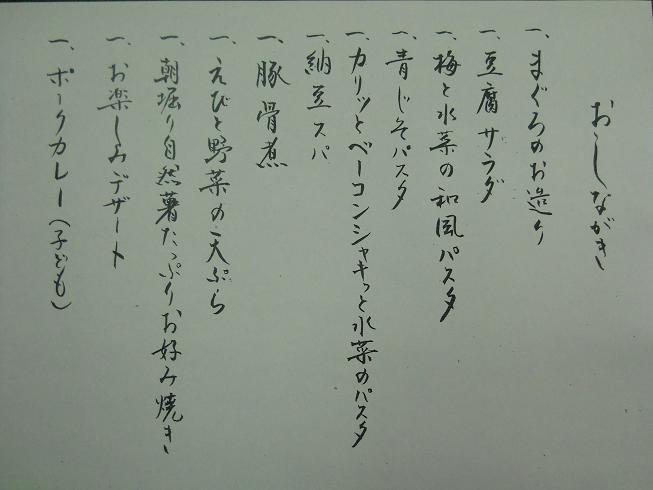 おしながき
一、まぐろのお造り
一、豆腐サラダ
一、梅と水菜の和風パスタ
一、青じそパスタ
一、カリッとベーコンシャキっと水菜のパスタ
一、納豆スパ
一、豚骨煮
一、えびと野菜の天ぷら
一、朝堀り自然薯たっぷりお好み焼き
一、お楽しみデザート
一、ポークカレー(子ども)